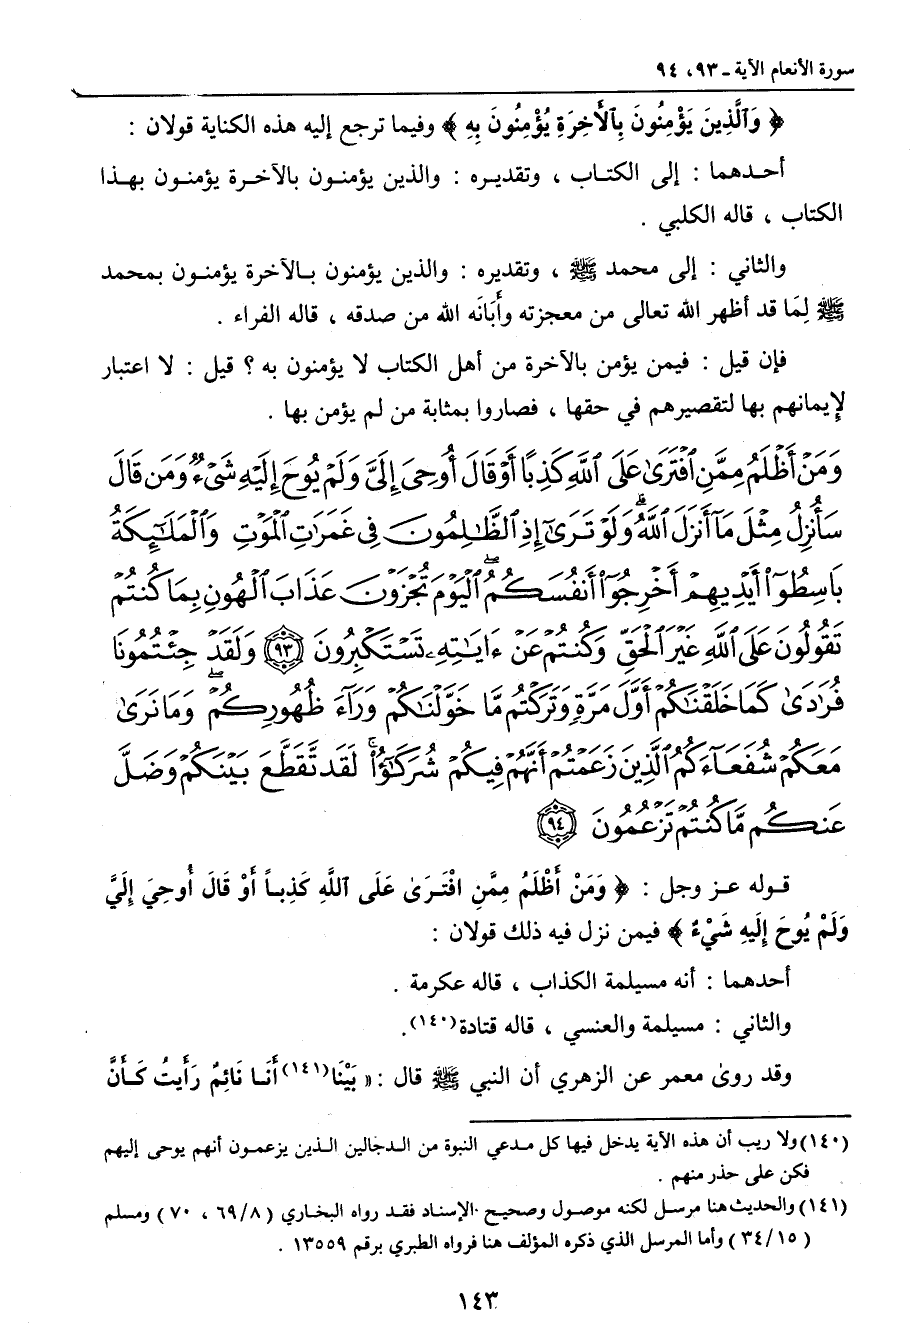 سورة الأنعام الآية ـ ٩٣، ٩٤
﴿ وَالَّذِينَ يَؤْمِنُونَ بِالْآخِرَةِ يُؤْمِنُونَ بِهِ ﴾ وفيما ترجع إليه هذه الكناية قولان :
أحـدهما : إلى الكتـاب ، وتقديـره : والذين يؤمنـون بالآخـرة يؤمنـون بهـذا
الكتاب ، قاله الكلبي .
والثاني : إلى محمد ﷺ ، وتقديره : والذين يؤمنون بـالآخرة يؤمنـون بمحمد
ﷺ لِمَا قد أظهر الله تعالى من معجزته وأَبَانَه الله من صدقه ، قاله الفراء .
فإن قيل : فيمن يؤمن بالآخرة من أهل الكتاب لا يؤمنون به ؟ قيل : لا اعتبار
لإِيمانهم بها لتقصيرهم في حقها ، فصاروا بمثابة من لم يؤمن بها .
وَمَنْ أَظْلَمُ مِمَّنِ ٱفْتَرَىٰ عَلَى ٱللَّهِ كَذِبًا أَوْ قَالَ أُوحِيَ إِلَيَّ وَلَمْ يُوحَ إِلَيْهِ شَيْءٌ وَمَن قَالَ
سَأُنزِلُ مِثْلَ مَآ أَنزَلَ ٱللَّهُ ۗ وَلَوْ تَرَىٰٓ إِذِ ٱلظَّٰلِمُونَ فِي غَمَرَٰتِ ٱلْمَوْتِ وَٱلْمَلَٰٓئِكَةُ
بَاسِطُوٓا۟ أَيْدِيهِمْ أَخْرِجُوٓا۟ أَنفُسَكُمُ ۖ ٱلْيَوْمَ تُجْزَوْنَ عَذَابَ ٱلْهُونِ بِمَا كُنتُمْ
تَقُولُونَ عَلَى ٱللَّهِ غَيْرَ ٱلْحَقِّ وَكُنتُمْ عَنْ ءَايَٰتِهِۦ تَسْتَكْبِرُونَ ٩٣ وَلَقَدْ جِئْتُمُونَا
فُرَٰدَىٰ كَمَا خَلَقْنَٰكُمْ أَوَّلَ مَرَّةٍ وَتَرَكْتُم مَّا خَوَّلْنَٰكُمْ وَرَآءَ ظُهُورِكُمْ ۖ وَمَا نَرَىٰ
مَعَكُمْ شُفَعَآءَكُمُ ٱلَّذِينَ زَعَمْتُمْ أَنَّهُمْ فِيكُمْ شُرَكَٰٓؤُا۟ ۚ لَقَد تَّقَطَّعَ بَيْنَكُمْ وَضَلَّ
عَنكُم مَّا كُنتُمْ تَزْعُمُونَ ٩٤
قـوله عـز وجل : ﴿ وَمَنْ أَظْلَمُ مِمَّنِ افْتَـرَىٰ عَلَى اللَّهِ كَذِبـاً أَوْ قَالَ أُوحِيَ إِلَيَّ
وَلَمْ يُوحَ إِلَيهِ شَيْءٌ ﴾ فيمن نزل فيه ذلك قولان :
أحدهما : أنه مسيلمة الكذاب ، قاله عكرمة .
والثاني : مسيلمة والعنسي ، قاله قتادة(١٤٠).
وقد روىٰ معمر عن الزهري أن النبي ﷺ قال : « بَيْنَا(١٤١) أَنَـا نَائِمٌ رَأَيتُ كَـأَنَّ
(١٤٠) ولا ريب أن هذه الآية يدخل فيها كل مدعي النبوة من الـدجالين الـذين يزعمـون أنهم يوحى إليهم
فكن على حذر منهم .
(١٤١) والحديث هنا مرسل لكنه موصول وصحيح الإسناد فقـد رواه البخـاري (٦٩/٨ ، ٧٠ ) ومسلم
( ٣٤/١٥ ) وأما المرسل الذي ذكره المؤلف هنا فرواه الطبري برقم ١٣٥٥٩ .
١٤٣